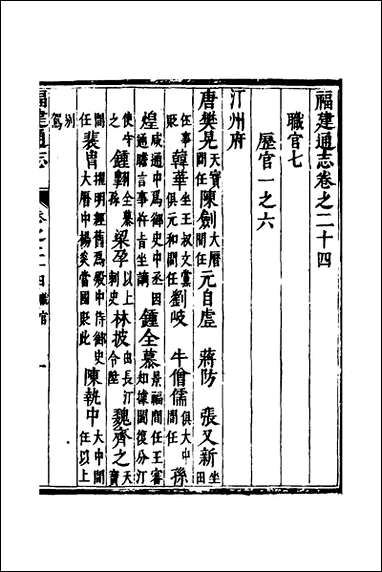 福建通志卷之二十四
職官七
歷官一之六
汀州府
唐樊晃天寶間任陳劍大曆間任元自虛 蔣防 張又新坐田
伾事貶韓華坐王叔文黨俱元和間任劉岐 牛僧儒俱大中間任孫
煌咸通中爲御史中丞因通驕言事忤旨坐謫鍾全慕景福間任王審知據閩復分汀
使守之鍾翱全慕孫梁孕以上刺史林披由長汀令陞魏齊之天寶
間任裴冑擢明經舊爲殿中侍御史大曆中楊炎當國貶此陳執中大中間任以上
別駕
福建通志 卷之二十四 職官 一